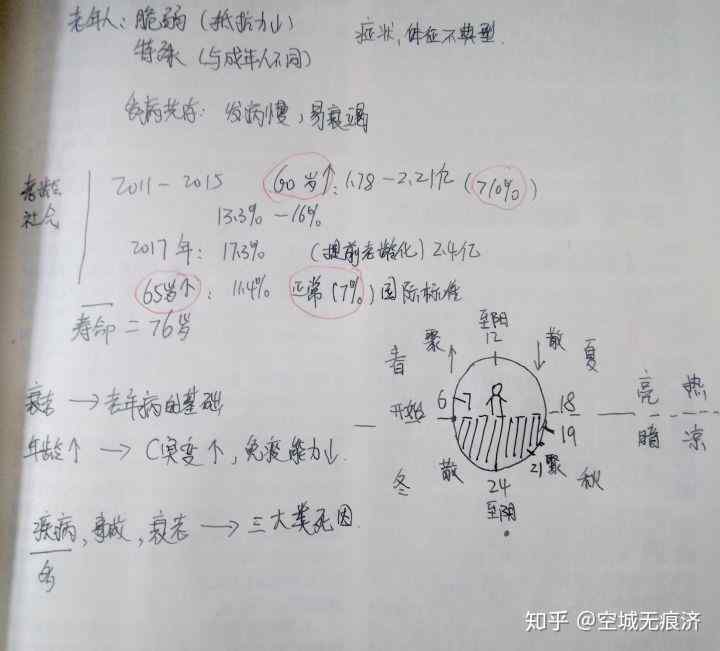 老年人：脆弱（抵抗力↓） 症状，体征不典型
特殊（与成年人不同）
多病共存：发病慢，易衰竭
老龄社会
2011－2015 60岁↑：1.78－2.21亿（>10%）
13.3%－16%
2017年：17.3% （提前老龄化）2.4亿
65岁↑：11.4% 正常（7%）国际标准
寿命＝76岁
衰老→老年病的基础
年龄↑→C突变↑，免疫能力↓
疾病，事故，衰老→三大类死因
多
至阳
12
春 聚 ↑ ↓ 散 夏
开始 6 7 18 亮 热
19 暗 凉
冬 散 21 聚 秋
24
至阴
知乎 @空城无痕济